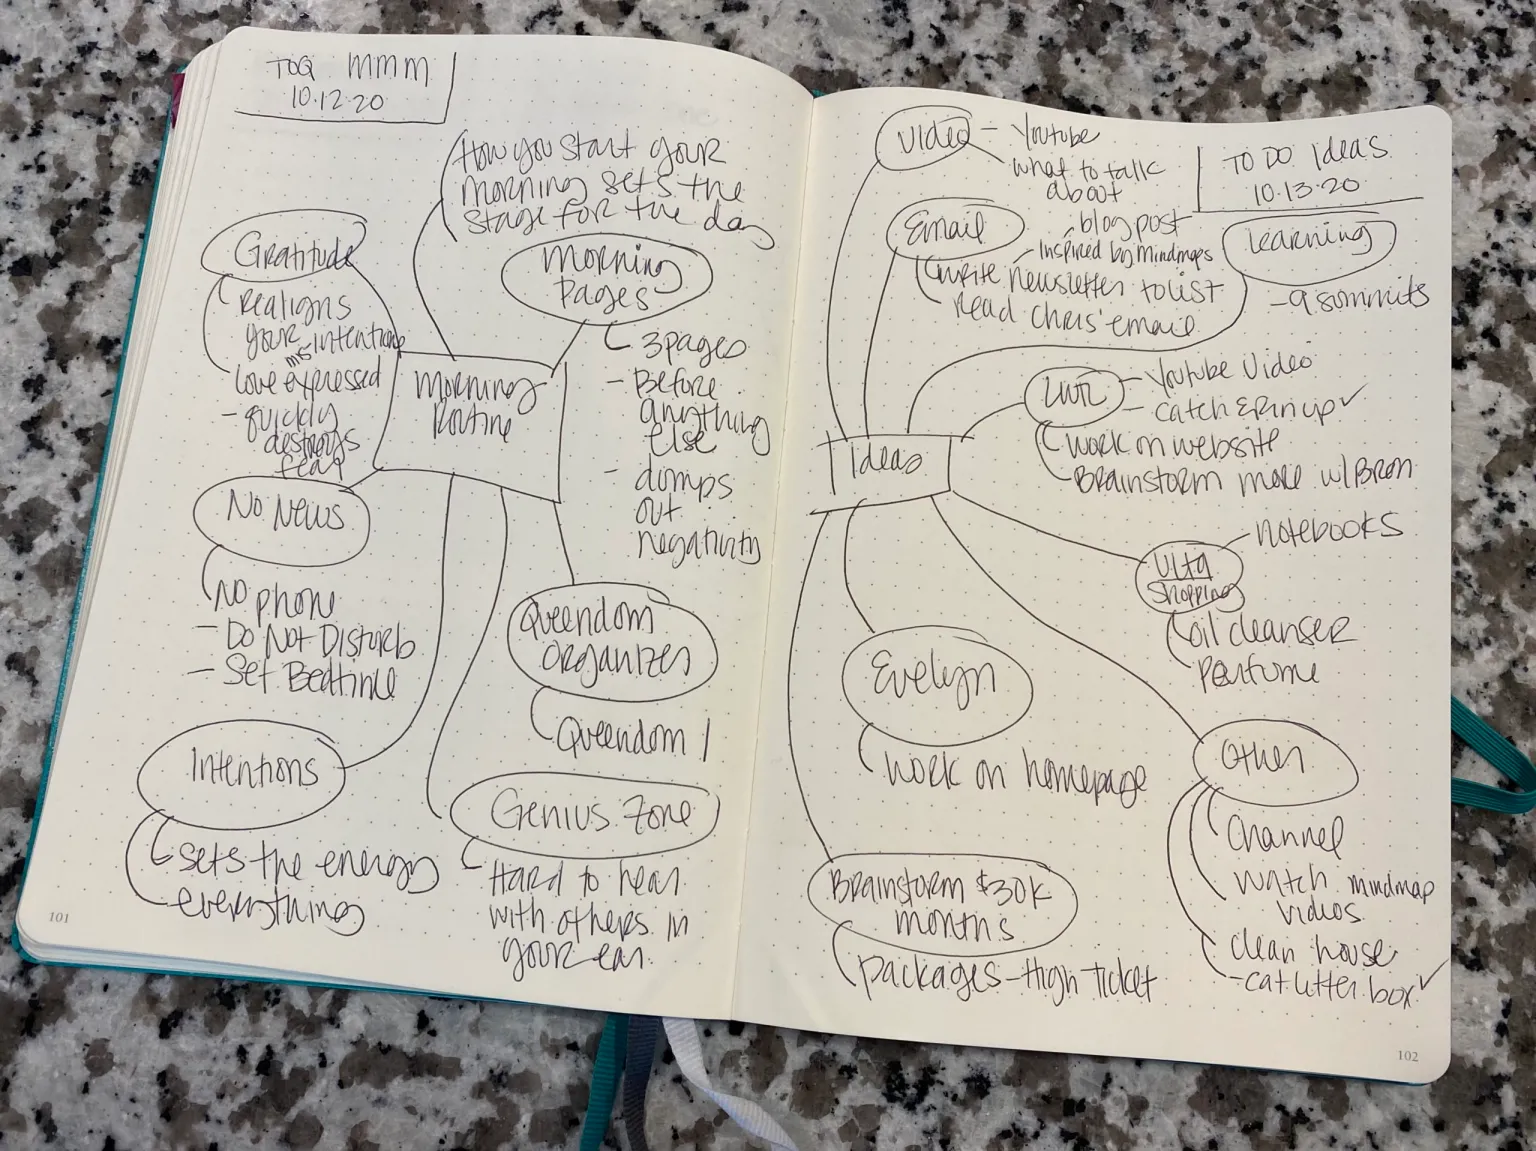 TOQ MMM
10.12.20
How you start your
morning sets the
stage for the day
Gratitude
Realigns
your
mis intentions
love expressed
- quickly
destroys
fear
Morning
Pages
3 pages
- Before
anything
else
- dumps
out
negativity
Morning
Routine
No News
No phone
- Do Not Disturb
- Set Bedtime
Queendom
Organizes
Queendom 1
Intentions
sets the energy
everything
Genius Zone
Hard to hear
with others in
your ear
101
TO DO Ideas
10.13.20
Video - Youtube
what to talk
about
Email
blog post
Inspired by Mindmaps
write newsletter to list
Read Chris' email
Learning
- 9 summits
- Youtube Video
- catch Erin up ✓
work on website
Brainstorm more w/ Bron
Ideas
Ulta
Shopping
notebooks
oil cleanser
Perfume
Evelyn
work on homepage
Other
Channel
watch mindmap
videos
clean house
- cat litter box ✓
Brainstorm $30K
months
packages - High Ticket
102